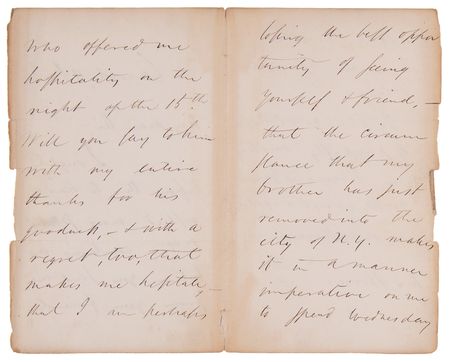 who offered me
hospitality on the
night of the 15th.
Will you say to him
with my entire
thanks for his
goodness, – & with a
regret, too, that
makes me hesitate,
that I am perhaps
losing the best oppor
tunity of seeing
yourself & friend, –
that the circum
stance that my
brother has just
removed into the
city of N.Y. makes
it in a manner
imperative on me
to spend Wednesday